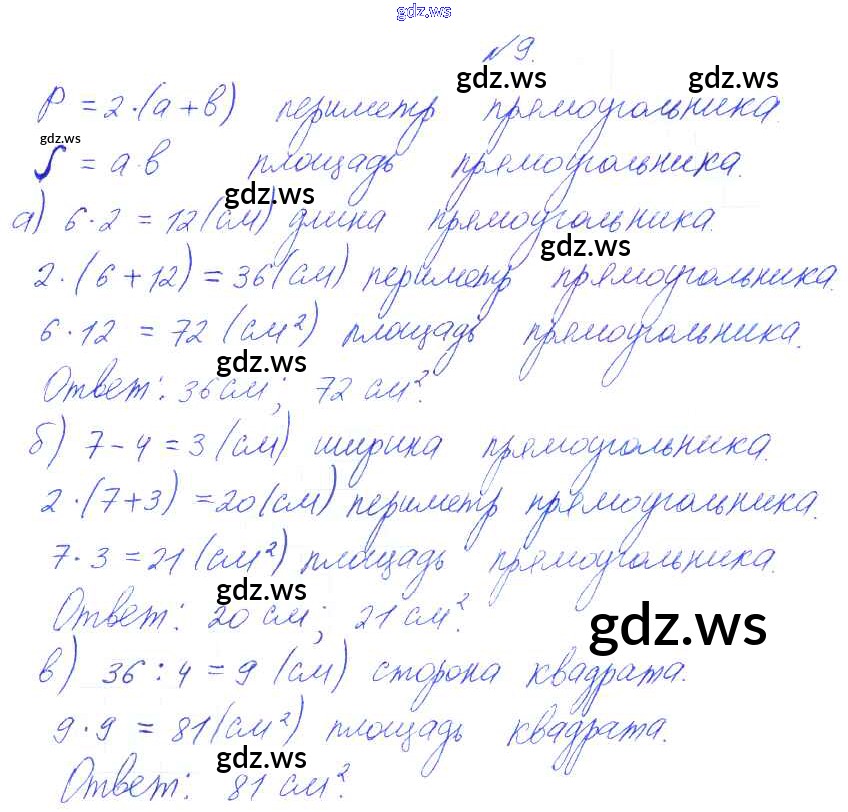 gdz.ws
№9.
gdz.ws gdz.ws
P = 2·(a+b) периметр прямоугольника.
gdz.ws
S = a·b площадь прямоугольника.
gdz.ws
а) 6·2 = 12 (см) длина прямоугольника.
gdz.ws
2·(6+12) = 36 (см) периметр прямоугольника.
6·12 = 72 (см²) площадь прямоугольника.
gdz.ws
Ответ: 36 см; 72 см².
б) 7-4 = 3 (см) ширина прямоугольника.
2·(7+3) = 20 (см) периметр прямоугольника.
7·3 = 21 (см²) площадь прямоугольника.
gdz.ws
Ответ: 20 см; 21 см².
gdz.ws
в) 36 : 4 = 9 (см) сторона квадрата.
9·9 = 81 (см²) площадь квадрата.
gdz.ws
Ответ: 81 см².